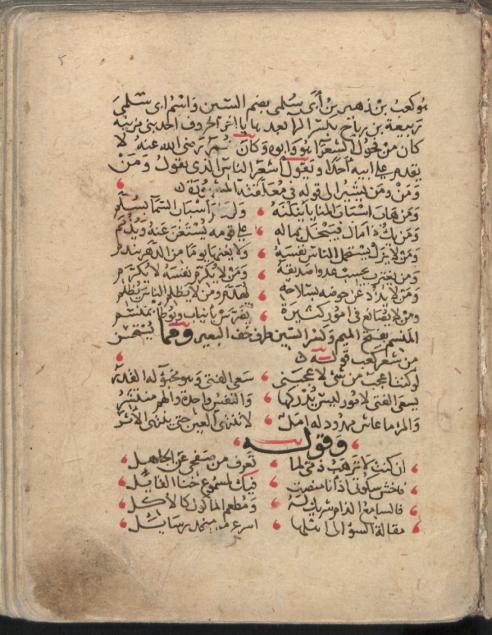 هو كعب بن زهير بن أبي سُلمى بضم السين واسم ابي سُلمى
ربيعة بن رياح بكسر الرا بعدها يا اخر الحروف احد بني مزينة
كان من فحول الشعرا هو وابوه وكان عُمر رضي الله عنه لا
يقدم على ابيه احدًا ويقول اشعر الناس الذي يقول ومَنْ
ومَنْ ومَن يشير الى قوله في معلقته
ومَن هاب اسباب المنايا ينلنه ولو اسباب السّما بسُلم
ومَن يكُ ذا مال فيبخل بماله على قومه يُستغن عنهُ ويُذمَمِ
ومَن لا يزل يستحمل الناس نفسهُ ولا يغنها يومًا من الدهر يندم
ومَن يغترب يحسب عدوا صديقهُ ومَن لا يكرم نفسهُ لا يُكرَّم
ومَن لا يذد عن حوضه بسلاحه يهدّم ومن لا يظلم الناس يُظلم
ومَن لا يصانع في امور كثيرة يُضرّس بانياب ويوطا بمنسم
المنسم بفتح الميم وكسر السين طرف خف البعير ومما يُستحسن
من شعر كعب قوله
لو كنت اعجب من شي لاعجبني سعي الفتى وهو مخبوّ له القدر
يسعى الفتى لامور ليس يُدركها والنفس واحدة والهم منتشر
والمرء ما عاش ممدود له امل لا تنتهي العين حتى ينتهي الأثر
وقوله
ان كنت لا ترهب ذمي لما تعرف من صفحي عن الجاهل
فاخش سكوتي اذ انا منصت فيك لمسموع خنا القايل
فالسامع الذام شريك له ومُطعم الماكول كالاكل
مقالة السو الى اهلها اسرع من منحدر سايل